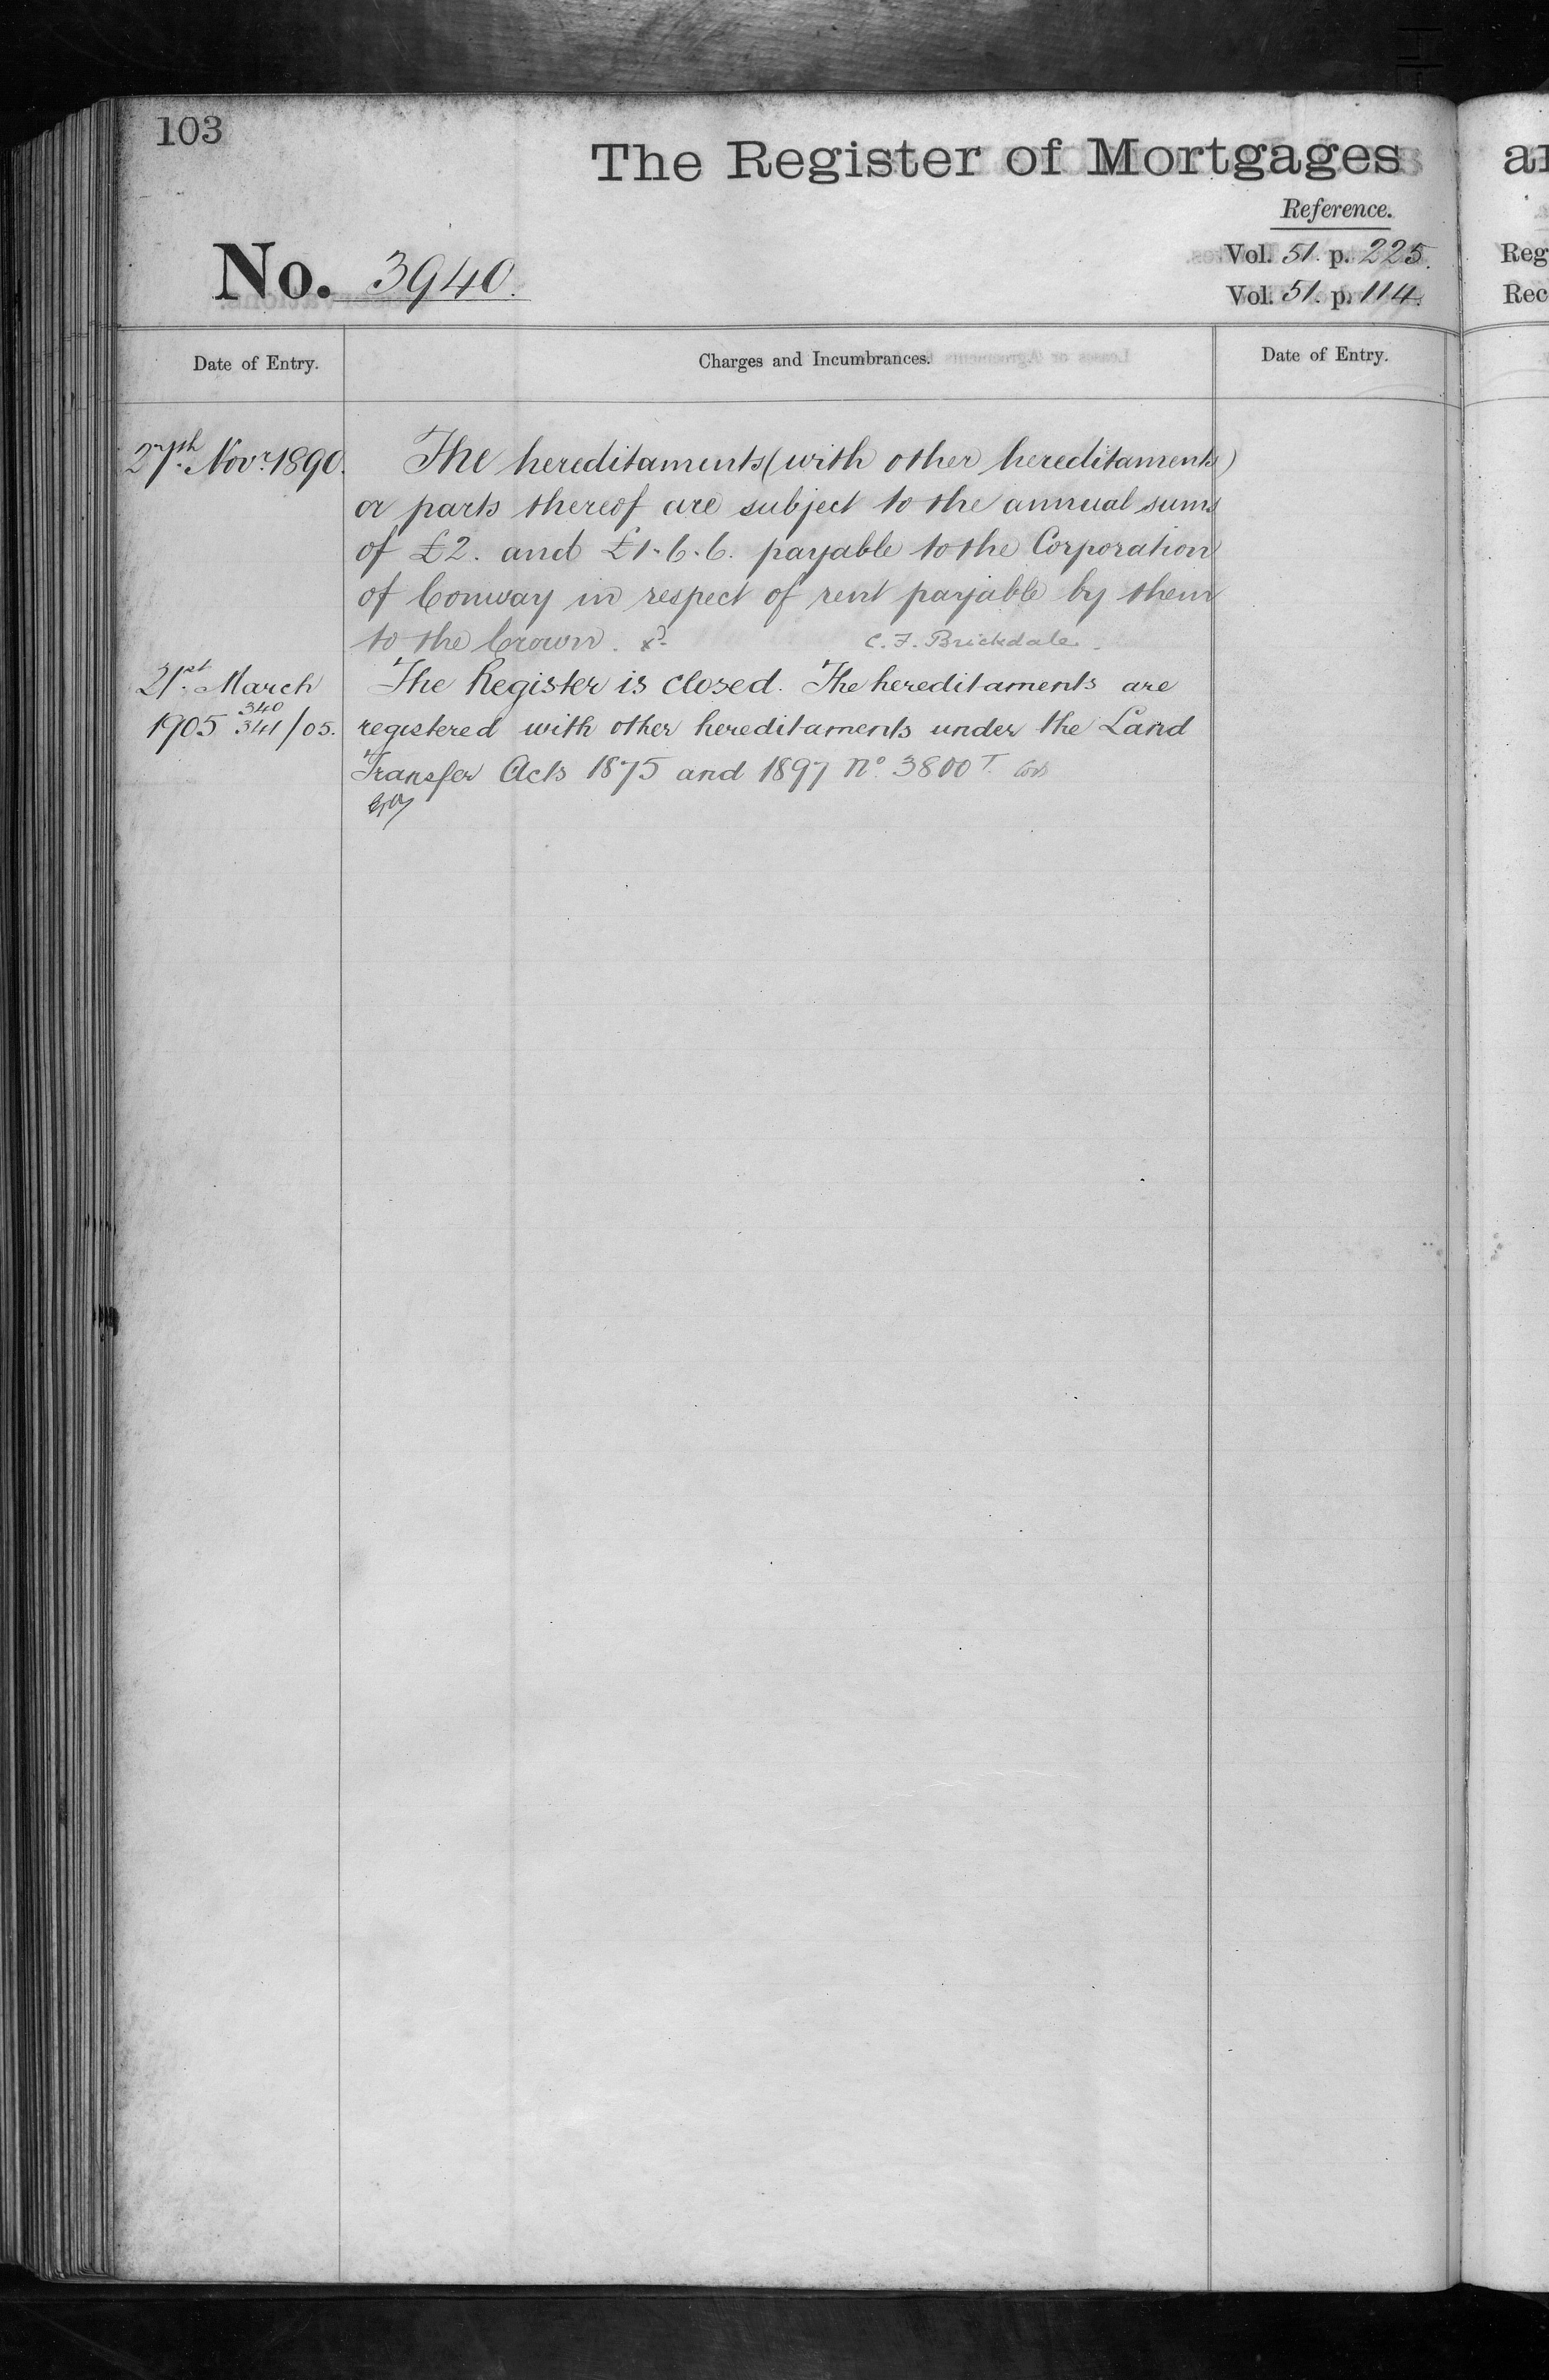 103
The Register of Mortgages
Reference.
No. 3940.
Vol. 51. p. 225.
Vol. 51. p. 114.
Date of Entry.
Charges and Incumbrances.
Date of Entry.
27th. Novr. 1890.
The hereditaments (with other hereditaments)
or parts thereof are subject to the annual sums
of £2. and £1.6.6. payable to the Corporation
of Conway in respect of rent payable by them
to the Crown. C. F. Brickdale.
21st. March
1905 340
341/05.
The Register is closed. The hereditaments are
registered with other hereditaments under the Land
Transfer Acts 1875 and 1897 No. 3800 T.
Reg
Rec